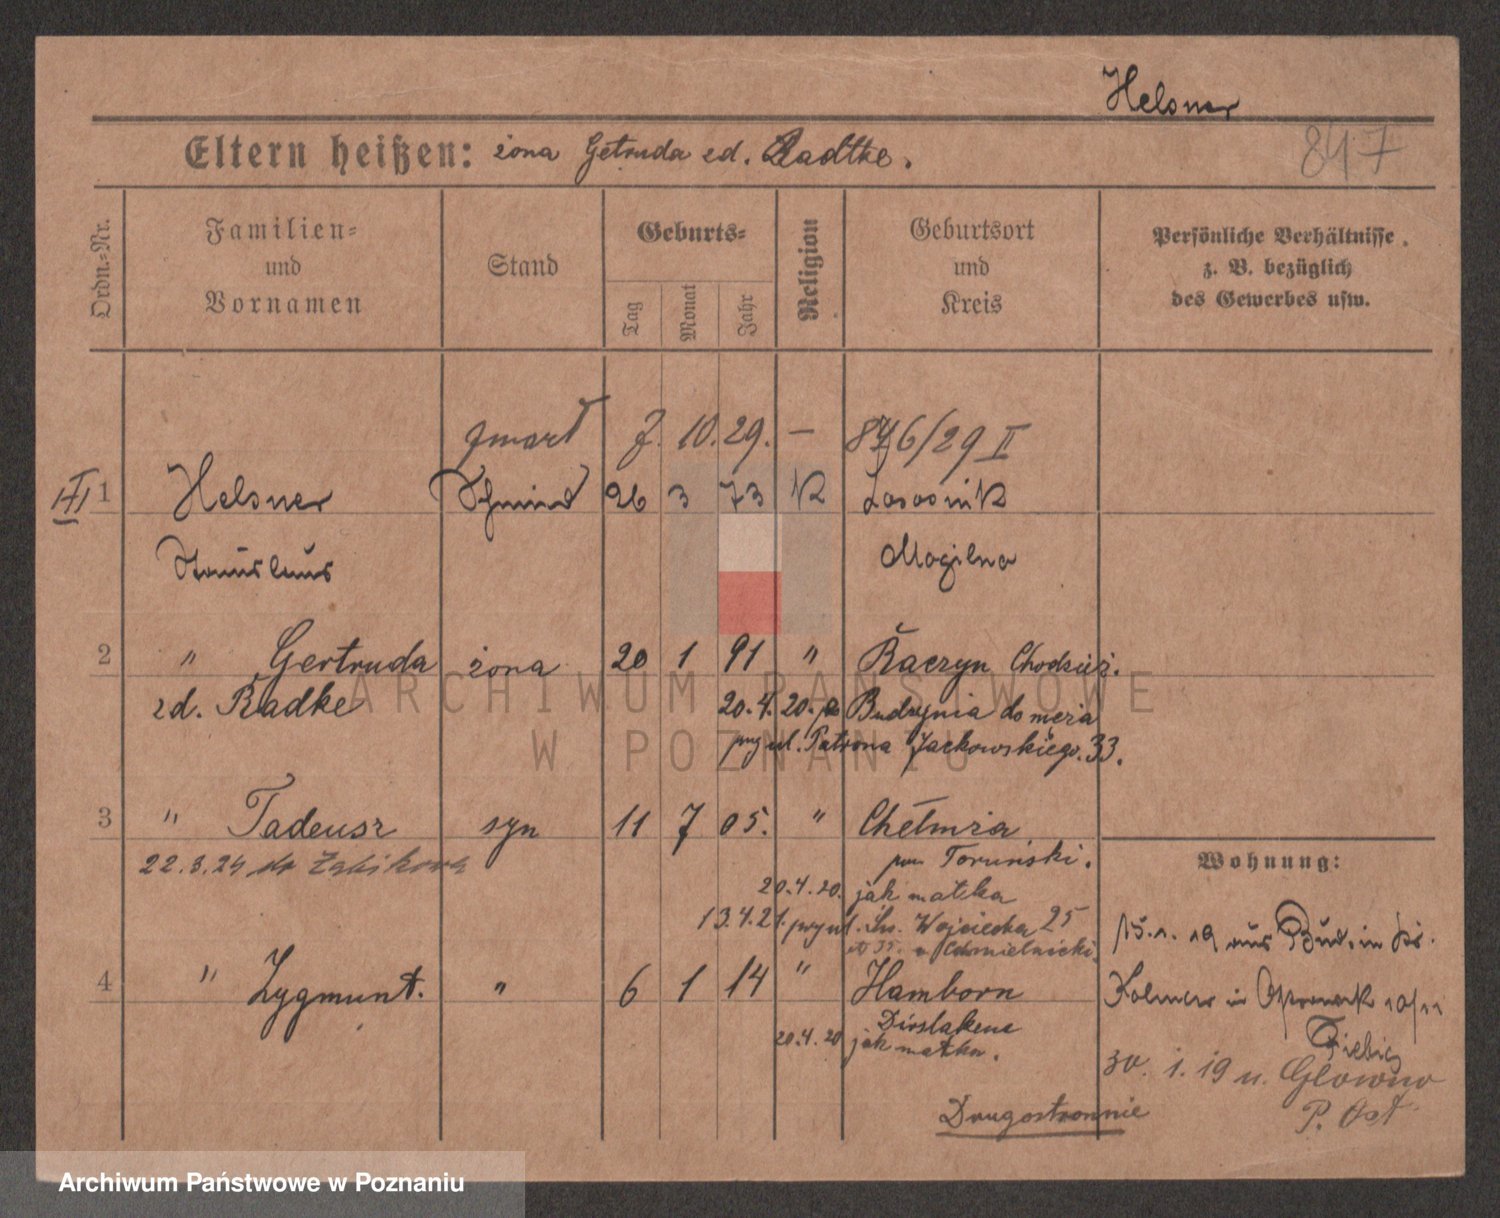 Helsner
847
Eltern heißen: żona Getruda zd. Radtke.
Ordn.-Nr.
Familien-
und
Vornamen
Stand
Geburts-
Tag
Monat
Jahr
Religion
Geburtsort
und
Kreis
Persönliche Verhältnisse
z. B. bezüglich
des Gewerbes usw.
zmarł 7. 10. 29. — 846/29 II
III 1 Helsner Schmied 26 3 73 K Lososnik
Stanislaus Mogilno
2 " Gertruda żona 20 1 91 " Raczyn Chodzież.
zd. Radke 20.4.20. Budzynia do męża
przy ul. Patrona Jackowskiego 33.
3 " Tadeusz syn 11 7 05. " Chełmża
22.3.24 do Żabikowa
pow Toruński.
20.4.20. jak matka
13.4.21. przy ul. Św. Wojciecha 25
u Chmielnicki.
4 " Zygmunt. " 6 1 14 " Hamborn
Dinslakene
20.4.20 jak matka.
Drugostronnie
Wohnung:
15.1.19 aus Bud. in Kr.
Kolmar in 10/11
Fiebig
30. 1. 19 n. Glowno
P. Ost
ARCHIWUM PAŃSTWOWE
W POZNANIU
Archiwum Państwowe w Poznaniu